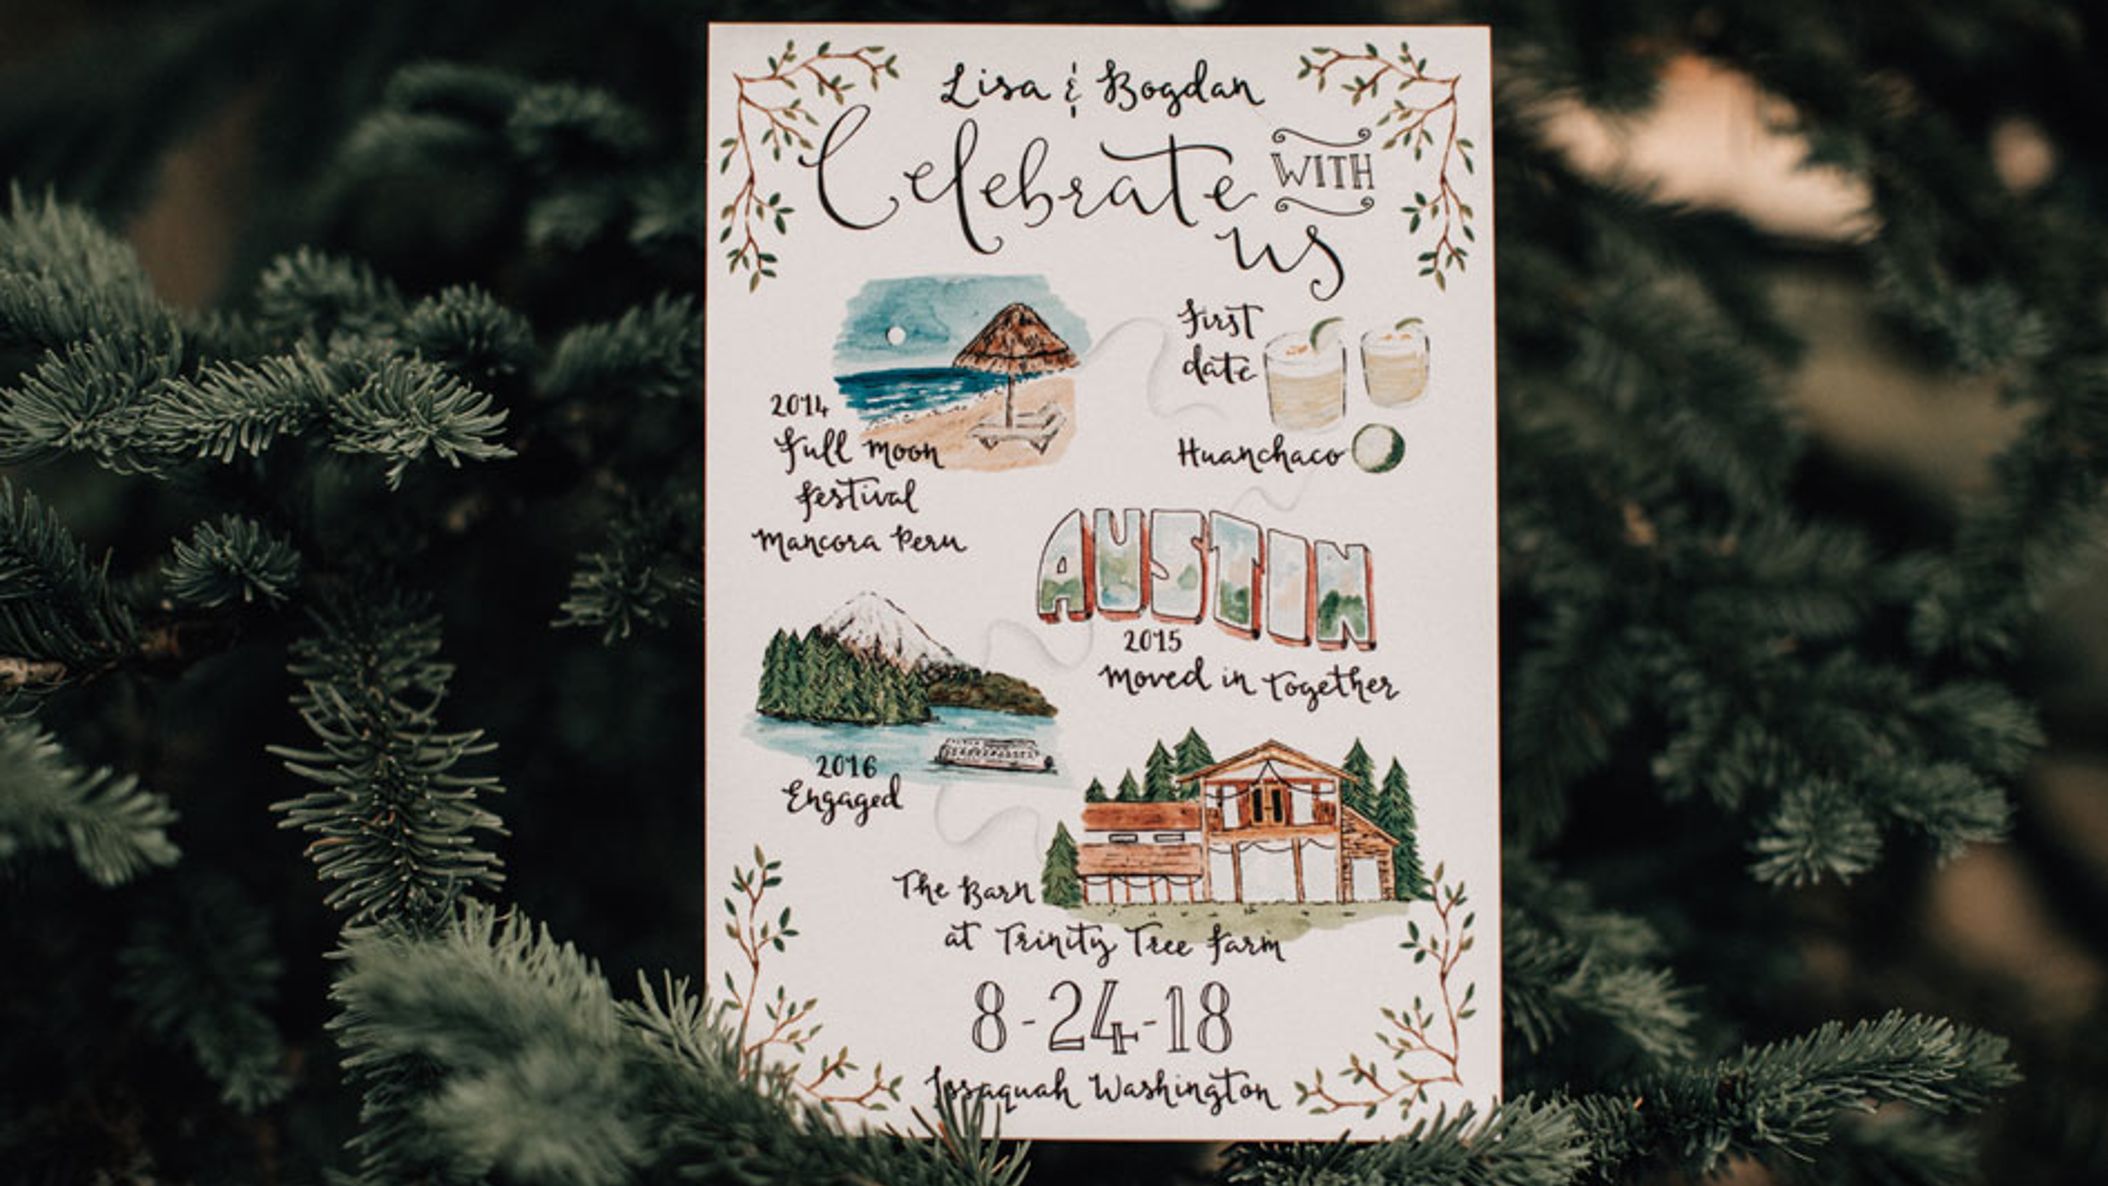 Lisa & Bogdan
Celebrate WITH
us
2014
Full Moon
Festival
Mancora Peru
First
date
Huanchaco
AUSTIN
2015
Moved in Together
2016
Engaged
The Barn
at Trinity Tree Farm
8-24-18
Issaquah Washington